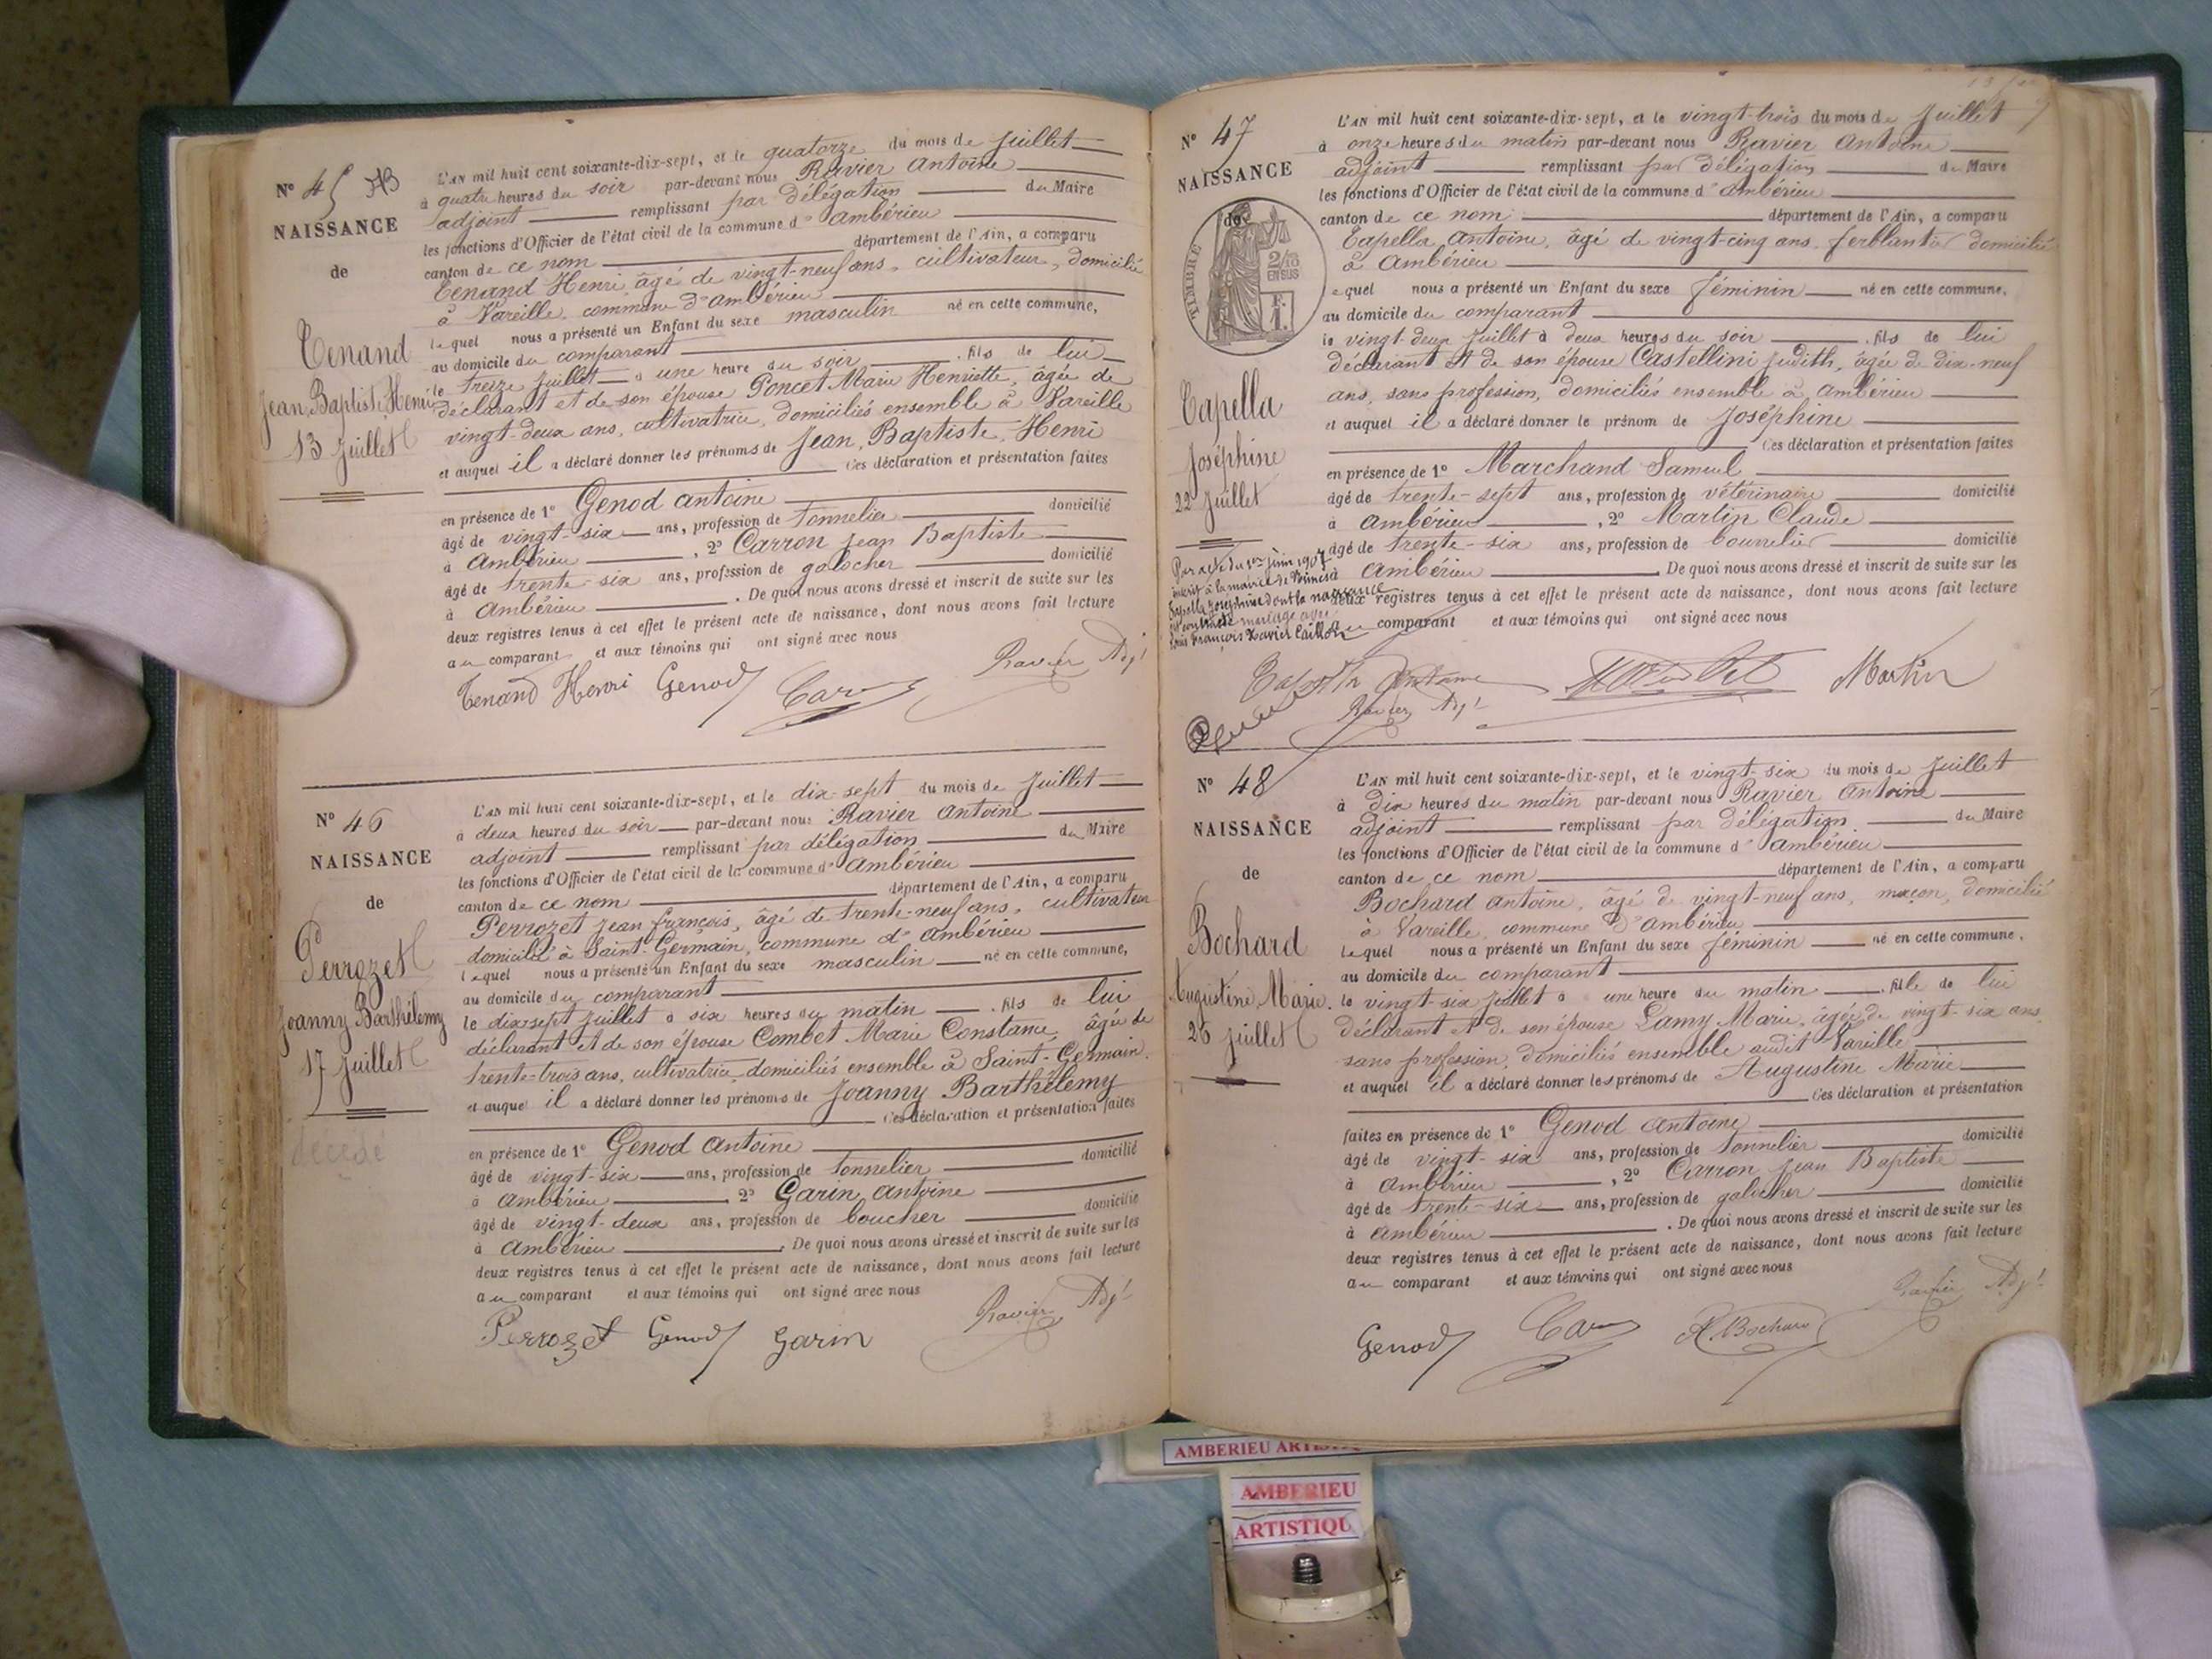 N° 45
NAISSANCE
de
Tenand
Jean, Baptiste, Henri
13 Juillet
L'AN mil huit cent soixante-dix-sept, et le quatorze du mois de Juillet
à quatre heures du soir par-devant nous Ravier Antoine
adjoint remplissant par délégation du Maire
les fonctions d'Officier de l'état civil de la commune d'Ambérieu
canton de ce nom département de l'Ain, a comparu
Tenand Henri âgé de vingt-neuf ans, cultivateur, domicilié
à Vareille, commune d'Ambérieu
lequel nous a présenté un Enfant du sexe masculin né en cette commune,
au domicile du comparant
le treize Juillet à une heure du soir, fils de lui
déclarant et de son épouse Poncet Marie Henriette, âgée de
vingt-deux ans, cultivatrice, domiciliés ensemble à Vareille
et auquel il a déclaré donner les prénoms de Jean, Baptiste, Henri
Ces déclaration et présentation faites
en présence de 1° Genod Antoine
âgé de vingt-six ans, profession de tonnelier domicilié
à Ambérieu, 2° Carron Jean Baptiste
âgé de trente-six ans, profession de galocher domicilié
à Ambérieu. De quoi nous avons dressé et inscrit de suite sur les
deux registres tenus à cet effet le présent acte de naissance, dont nous avons fait lecture
au comparant et aux témoins qui ont signé avec nous
Tenand Henri Genod Car Ravier Adjt
N° 46
NAISSANCE
de
Perrozet
Joanny Barthélemy
17 Juillet
décédé
L'AN mil huit cent soixante-dix-sept, et le dix-sept du mois de Juillet
à deux heures du soir par-devant nous Ravier Antoine
adjoint remplissant par délégation du Maire
les fonctions d'Officier de l'état civil de la commune d'Ambérieu
canton de ce nom département de l'Ain, a comparu
Perrozet Jean François, âgé de trente-neuf ans, cultivateur
domicilié à Saint-Germain, commune d'Ambérieu
lequel nous a présenté un Enfant du sexe masculin né en cette commune,
au domicile du comparant
le dix-sept Juillet à six heures du matin, fils de lui
déclarant et de son épouse Combet Marie Constance, âgée de
trente-trois ans, cultivatrice, domiciliés ensemble à Saint-Germain.
et auquel il a déclaré donner les prénoms de Joanny Barthélemy
Ces déclaration et présentation faites
en présence de 1° Genod Antoine
âgé de vingt-six ans, profession de tonnelier domicilié
à Ambérieu, 2° Garin Antoine
âgé de vingt-deux ans, profession de boucher domicilié
à Ambérieu. De quoi nous avons dressé et inscrit de suite sur les
deux registres tenus à cet effet le présent acte de naissance, dont nous avons fait lecture
au comparant et aux témoins qui ont signé avec nous
Perrozet Genod Garin Ravier Adjt
N° 47
NAISSANCE
de
TIMBRE
2/10
EN SUS
F.
1.
Capella
Joséphine
22 Juillet
Par acte du 1er Juin 1907
inscrit à la mairie de
Capella Joséphine dont la naissance
a contracté mariage avec
Louis François Xavier Caillon
L'AN mil huit cent soixante-dix-sept, et le vingt-trois du mois de Juillet
à onze heures du matin par-devant nous Ravier Antoine
adjoint remplissant par délégation du Maire
les fonctions d'Officier de l'état civil de la commune d'Ambérieu
canton de ce nom département de l'Ain, a comparu
Capella Antoine, âgé de vingt-cinq ans, ferblantier domicilié
à Ambérieu
lequel nous a présenté un Enfant du sexe féminin né en cette commune,
au domicile du comparant
le vingt-deux Juillet à deux heures du soir, fils de lui
déclarant et de son épouse Castellini Judith, âgée de dix-neuf
ans, sans profession, domiciliés ensemble à Ambérieu
et auquel il a déclaré donner le prénom de Joséphine
Ces déclaration et présentation faites
en présence de 1° Marchand Samuel
âgé de trente-sept ans, profession de vétérinaire domicilié
à Ambérieu, 2° Martin Claude
âgé de trente-six ans, profession de bourrelier domicilié
à Ambérieu. De quoi nous avons dressé et inscrit de suite sur les
deux registres tenus à cet effet le présent acte de naissance, dont nous avons fait lecture
au comparant et aux témoins qui ont signé avec nous
Antoine Martin
Ravier Adjt
N° 48
NAISSANCE
de
Bochard
Augustine Marie.
26 Juillet
L'AN mil huit cent soixante-dix-sept, et le vingt-six du mois de Juillet
à dix heures du matin par-devant nous Ravier Antoine
adjoint remplissant par délégation du Maire
les fonctions d'Officier de l'état civil de la commune d'Ambérieu
canton de ce nom département de l'Ain, a comparu
Bochard Antoine, âgé de vingt-neuf ans, maçon, domicilié
à Vareille, commune d'Ambérieu
lequel nous a présenté un Enfant du sexe féminin né en cette commune,
au domicile du comparant
le vingt-six Juillet à une heure du matin, fille de lui
déclarant et de son épouse Lamy Marie, âgée de vingt-six ans,
sans profession, domiciliés ensemble audit Vareille
et auquel il a déclaré donner les prénoms de Augustine Marie
Ces déclaration et présentation
faites en présence de 1° Genod Antoine
âgé de vingt-six ans, profession de tonnelier domicilié
à Ambérieu, 2° Carron Jean Baptiste
âgé de trente-six ans, profession de galocher domicilié
à Ambérieu. De quoi nous avons dressé et inscrit de suite sur les
deux registres tenus à cet effet le présent acte de naissance, dont nous avons fait lecture
au comparant et aux témoins qui ont signé avec nous
Genod Car A. Bochard Ravier Adjt
AMBERIEU
AMBERIEU
ARTISTIQU